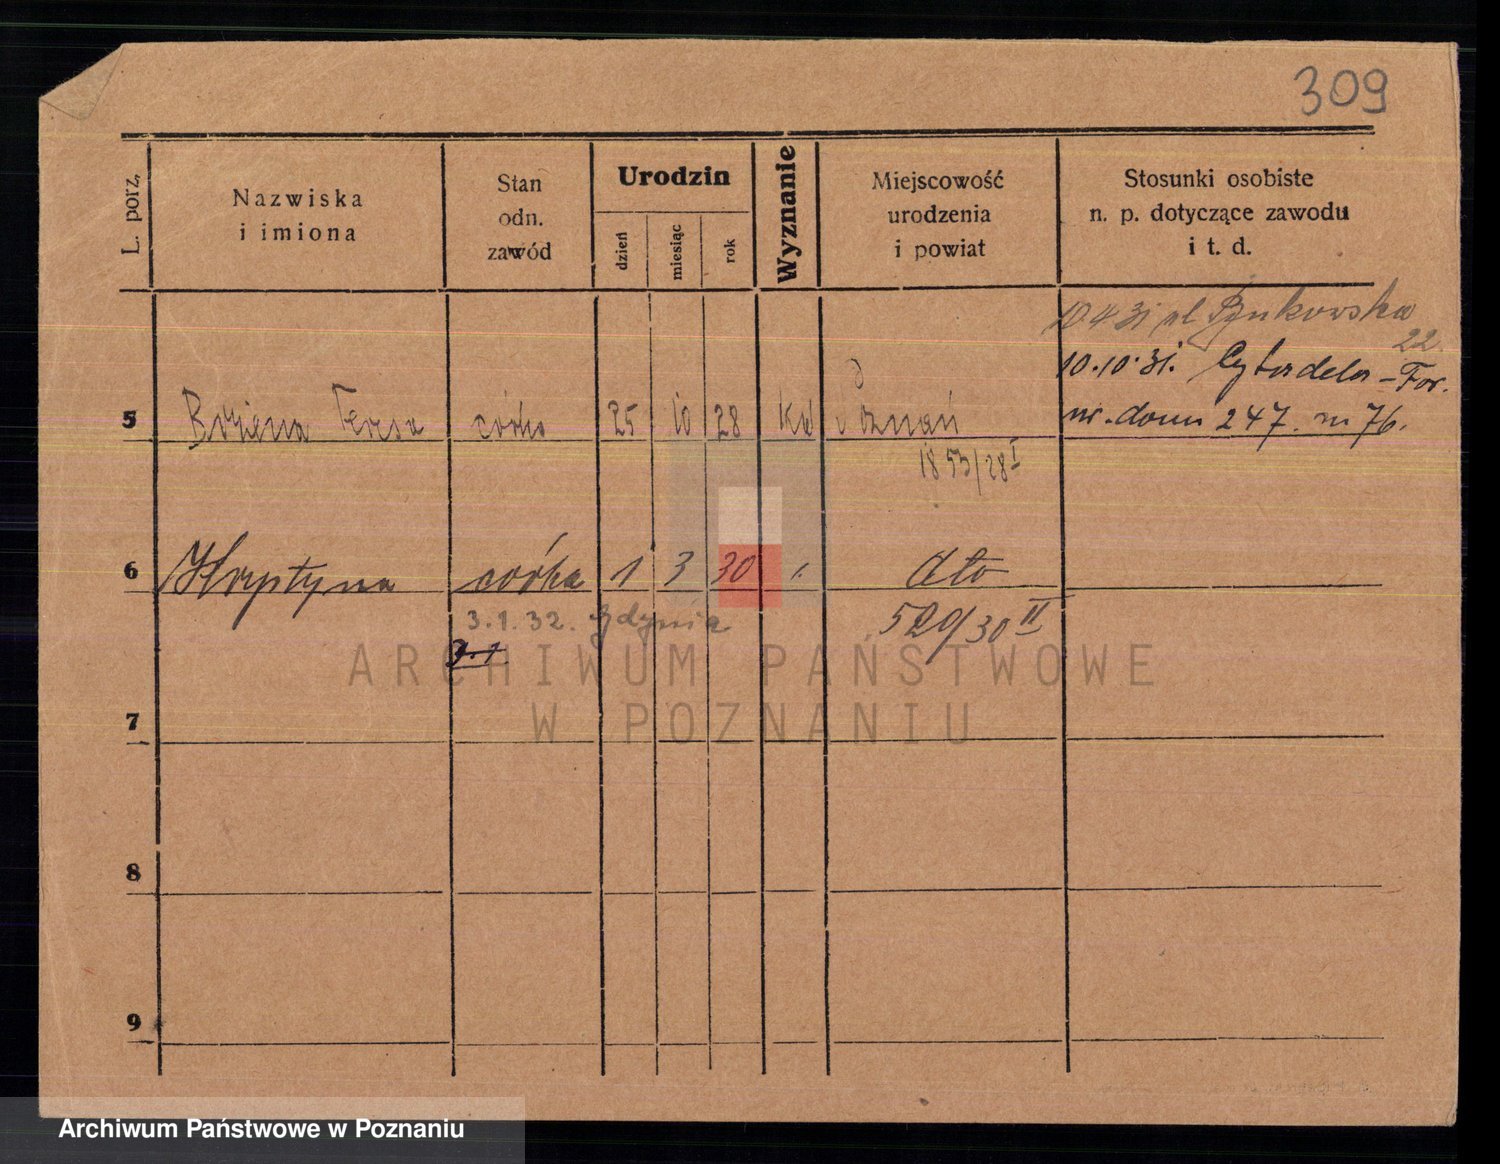 309
L. porz.
Nazwiska
i imiona
Stan
odn.
zawód
Urodzin
dzień
miesiąc
rok
Wyznanie
Miejscowość
urodzenia
i powiat
Stosunki osobiste
n. p. dotyczące zawodu
i t. d.
10.4 31 ul Bukowska
22.
10.10.31. Cytadela - For.
nr. domu 247. m 76.
5 Bożena Teresa córka 25 10 28 kat Poznań
1853/28 I
6 Krystyna córka 1 3 30 dto
3.1.32. Gdynia
520/30 II
3.1.
7
8
9
ARCHIWUM PAŃSTWOWE
W POZNANIU
Archiwum Państwowe w Poznaniu